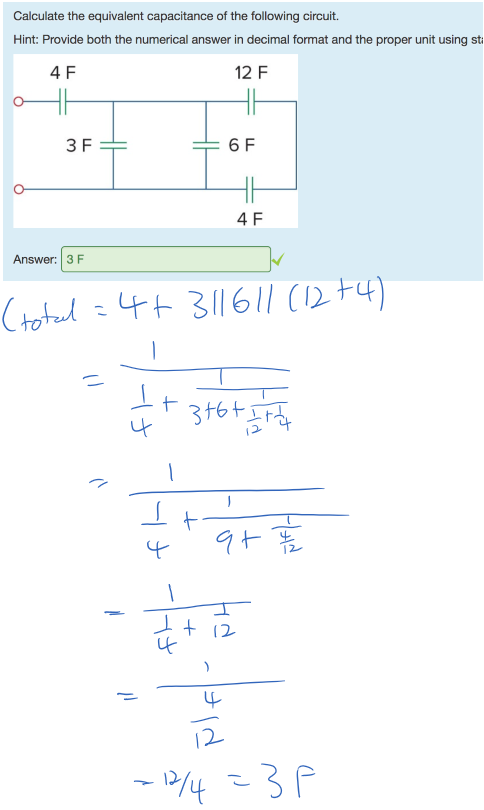 Calculate the equivalent capacitance of the following circuit.
Hint: Provide both the numerical answer in decimal format and the proper unit using sta
4 F
12 F
3 F
6 F
4 F
Answer: 3 F
Ctotal = 4 + 3||6||(12+4)
= 1/(1/4 + 1/(3+6+1/(1/12+1/4)))
= 1/(1/4 + 1/(9+1/(4/12)))
= 1/(1/4 + 1/12)
= 1/(4/12)
= 12/4 = 3F